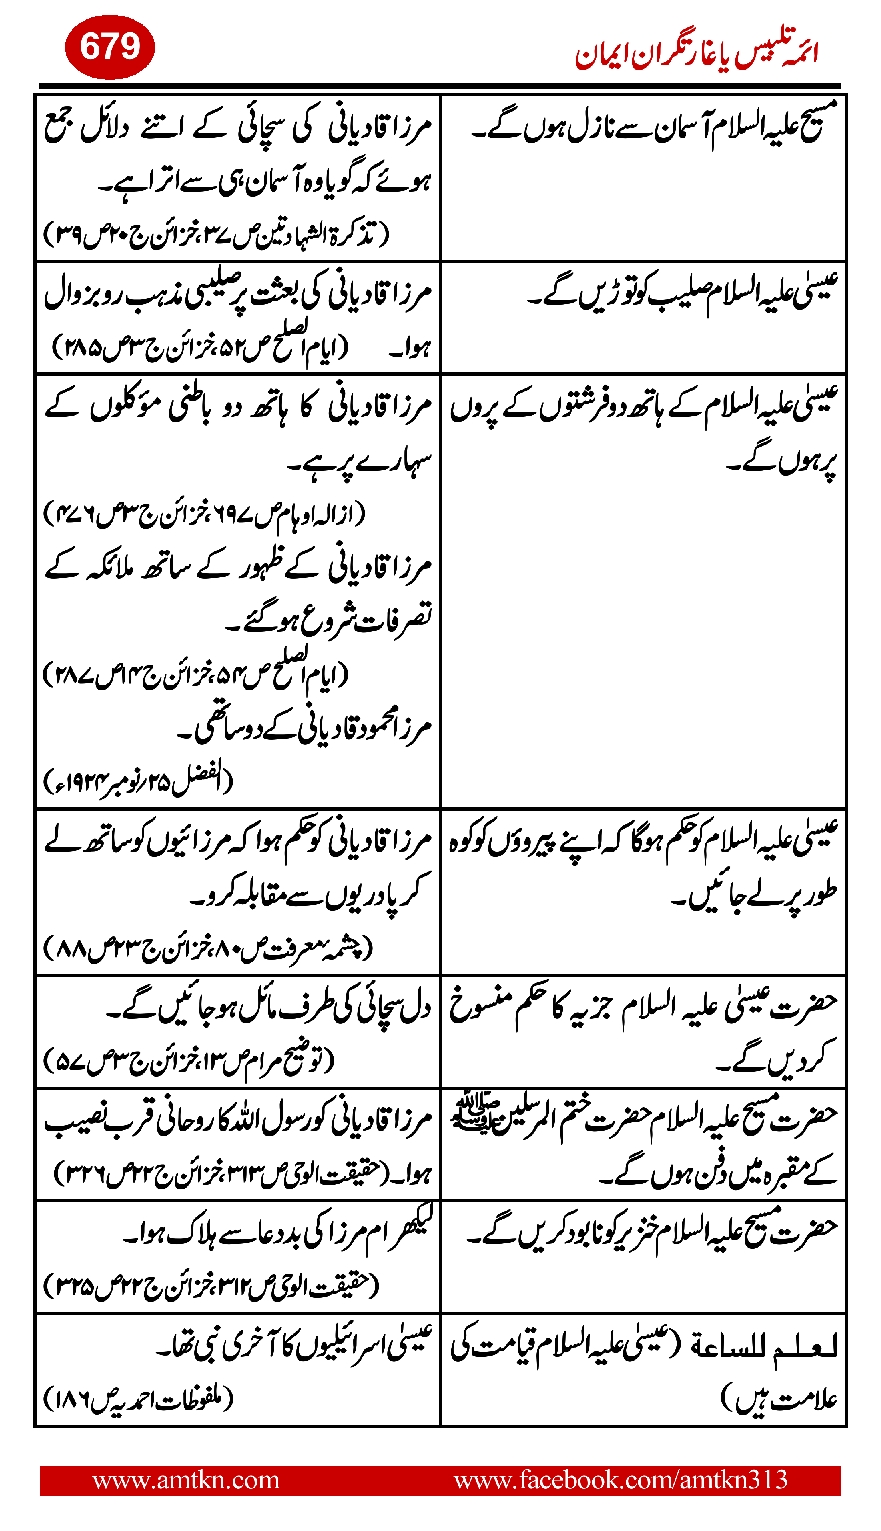 679
ائمہ تلبیس یا غارتگران ایمان
مسیح علیہ السلام آسمان سے نازل ہوں گے۔
مرزا قادیانی کی سچائی کے اتنے دلائل جمع
ہوئے کہ گویا وہ آسمان ہی سے اترا ہے۔
(تذکرۃ الشہادتین ص۳۷، خزائن ج۲۰ ص۳۹)
عیسیٰ علیہ السلام صلیب کو توڑیں گے۔
مرزا قادیانی کی بعثت پر صلیبی مذہب روبزوال
ہوا۔ (ایام الصلح ص۵۲، خزائن ج۳ ص۲۸۵)
عیسیٰ علیہ السلام کے ہاتھ دو فرشتوں کے پروں
پر ہوں گے۔
مرزا قادیانی کا ہاتھ دو باطنی مؤکلوں کے
سہارے پر ہے۔
(ازالہ اوہام ص۶۹۷، خزائن ج۳ ص۴۷۶)
مرزا قادیانی کے ظہور کے ساتھ ملائکہ کے
تصرفات شروع ہوگئے۔
(ایام الصلح ص۵۴، خزائن ج۱۴ ص۲۸۷)
مرزا محمود قادیانی کے دو ساتھی۔
(الفضل ۲۵؍نومبر ۱۹۲۴ء)
عیسیٰ علیہ السلام کو حکم ہوگا کہ اپنے پیروؤں کو کوہ
طور پر لے جائیں۔
مرزا قادیانی کو حکم ہوا کہ مرزائیوں کو ساتھ لے
کر پادریوں سے مقابلہ کرو۔
(چشمہ معرفت ص۸۰، خزائن ج۲۳ ص۸۸)
حضرت عیسیٰ علیہ السلام جزیہ کا حکم منسوخ
کردیں گے۔
دل سچائی کی طرف مائل ہو جائیں گے۔
(توضیح مرام ص۱۳، خزائن ج۳ ص۵۷)
حضرت مسیح علیہ السلام حضرت ختم المرسلین ﷺ
کے مقبرہ میں دفن ہوں گے۔
مرزا قادیانی کو رسول اللہ کا روحانی قرب نصیب
ہوا۔ (حقیقت الوحی ص۳۱۳، خزائن ج۲۲ ص۳۲۶)
حضرت مسیح علیہ السلام خنزیر کو نابود کریں گے۔
لیکھرام مرزا کی بددعا سے ہلاک ہوا۔
(حقیقت الوحی ص۳۱۲، خزائن ج۲۲ ص۳۲۵)
لعلم للساعة (عیسیٰ علیہ السلام قیامت کی
علامت ہیں)
عیسیٰ اسرائیلیوں کا آخری نبی تھا۔
(ملفوظات احمدیہ ص۱۸۶)
www.amtkn.com
www.facebook.com/amtkn313